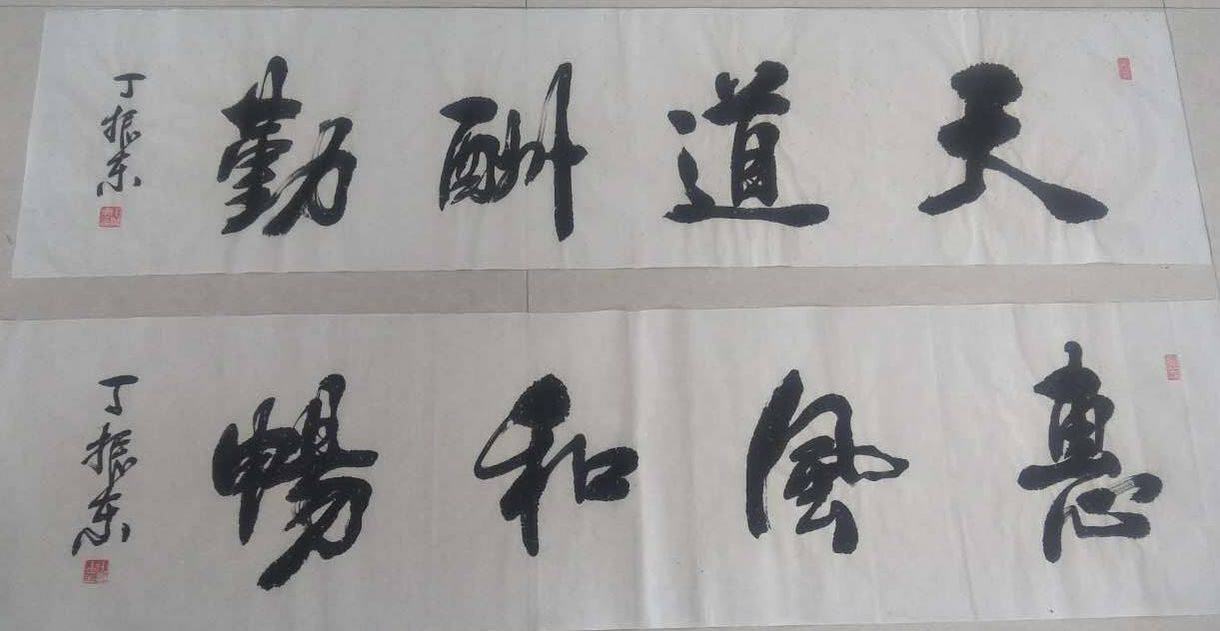 天道酬勤
丁振东
惠風和暢
丁振东